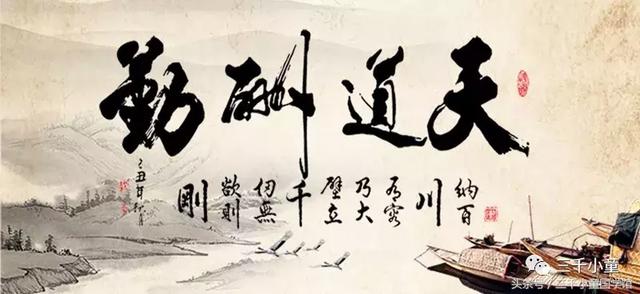 天道酬勤
納百川有容乃大壁立千仞無欲則剛
三千小童
头条号/三千小童国学馆